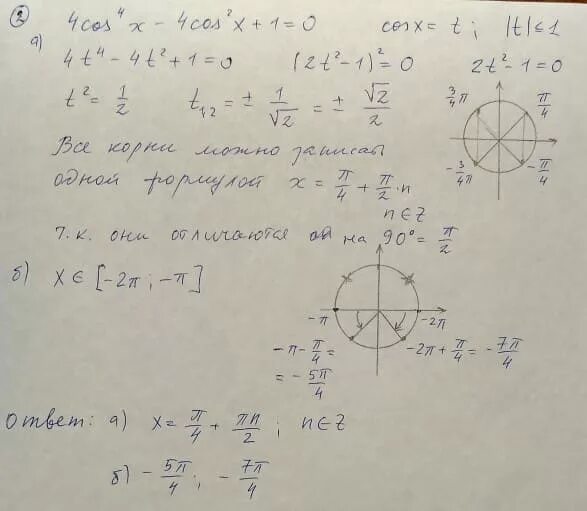 ② 4cos⁴x − 4cos²x + 1 = 0    cosx = t ;   |t| ≤ 1
а) 4t⁴ − 4t² + 1 = 0    (2t² − 1)² = 0    2t² − 1 = 0
t² = 1/2    t₁,₂ = ± 1/√2 = ± √2/2
3/4 π    π/4
−3/4π    −π/4
Все корни можно записать
одной формулой x = π/4 + π/2·n
n ∈ Z
т.к. они отличаются на 90° = π/2
б) x ∈ [−2π ; −π]
−π    −2π
−π − π/4 =    −2π + π/4 = −7π/4
= −5π/4
Ответ: а) x = π/4 + πn/2 ;  n ∈ Z
б) −5π/4 ; −7π/4